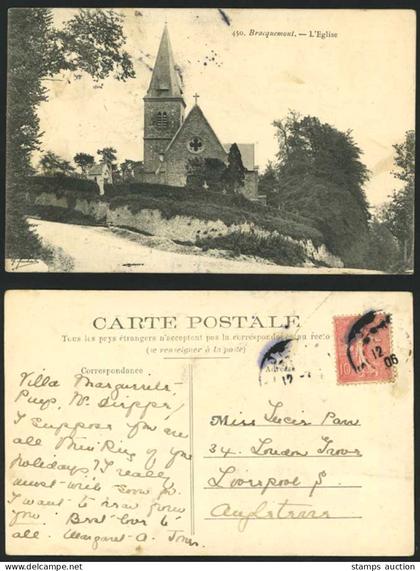 450. Bracquemont. — L'Eglise
stamps auction
CARTE POSTALE
Tous les pays étrangers n'acceptent pas la correspondance au recto
(se renseigner à la poste)
Correspondance
Adresse
10
12
06
12
Villa Marguerite
Puys, Nr. Dieppe,
I suppose you are
all thinking of you
holidays? I really
must write soon
I want to hear from
you. Best love to
all. Margaret A. Jones.
Miss Lucie Parr
34. London Grove
Liverpool S.
Angleterre